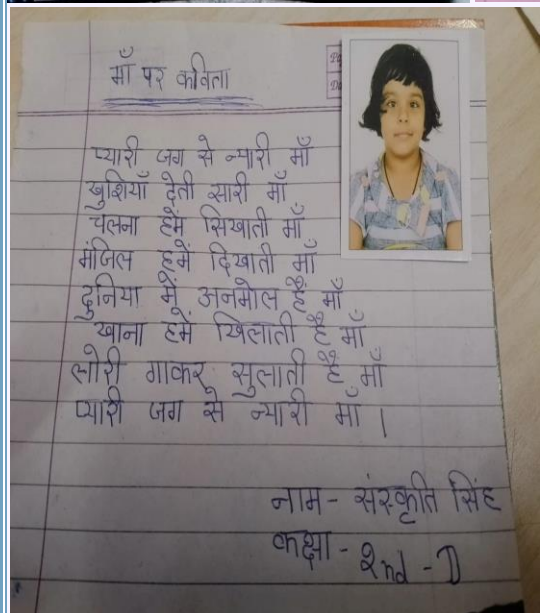 माँ पर कविता
प्यारी जग से न्यारी माँ
खुशियाँ देती सारी माँ
चलना हमें सिखाती माँ
मंजिल हमें दिखाती माँ
दुनिया में अनमोल हैं माँ
खाना हमें खिलाती हैं माँ
लोरी गाकर सुलाती हैं माँ
प्यारी जग से न्यारी माँ।
नाम - संस्कृति सिंह
कक्षा - 2nd - D